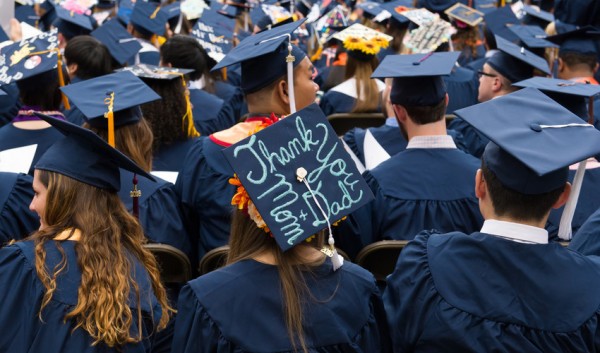 Thank You
Mom + Dad!